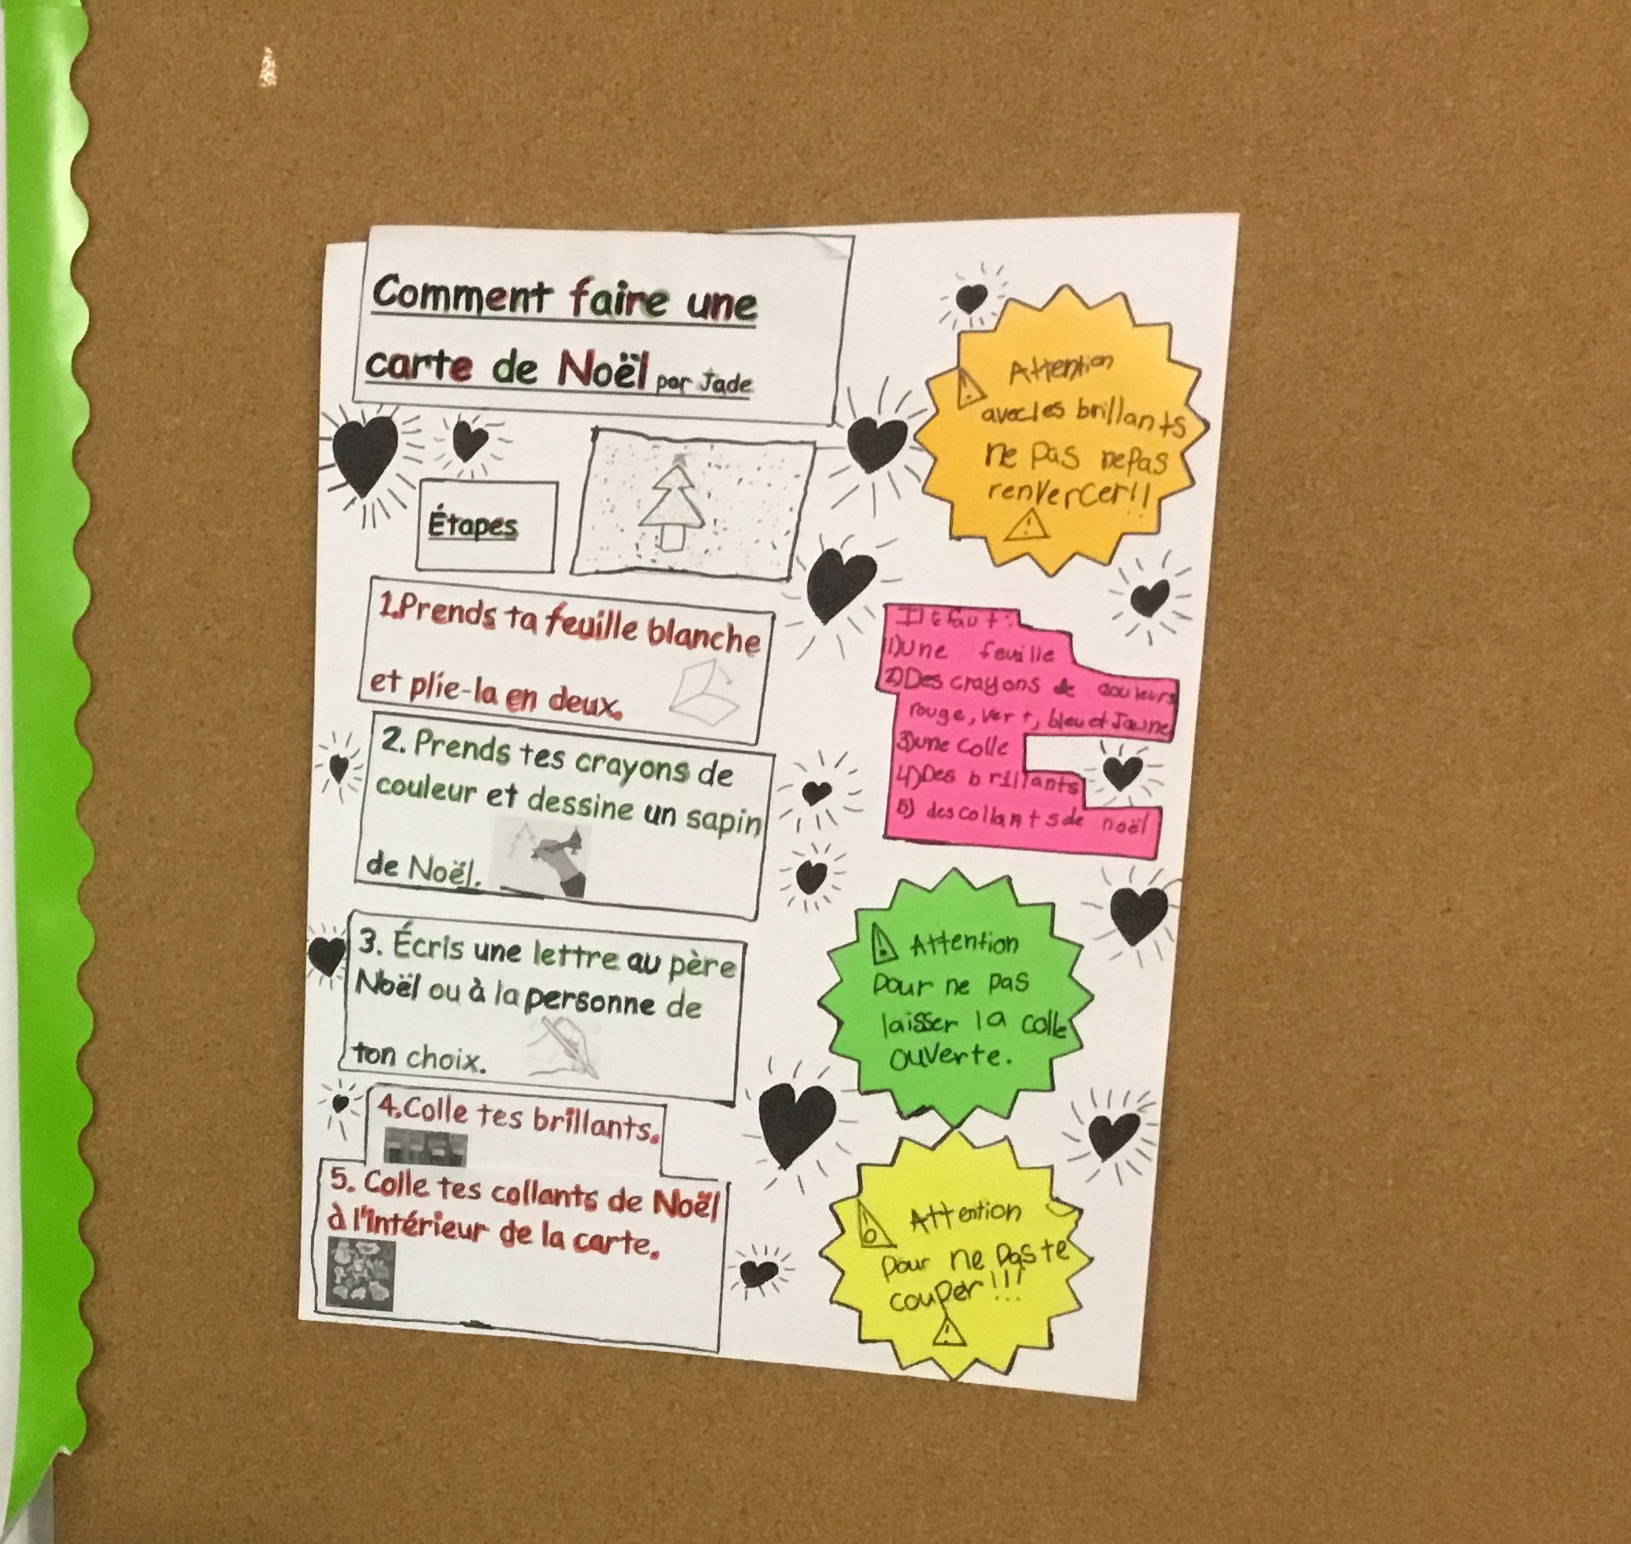 Comment faire une
carte de Noël par Jade
Étapes
1.Prends ta feuille blanche
et plie-la en deux.
2. Prends tes crayons de
couleur et dessine un sapin
de Noël.
3. Écris une lettre au père
Noël ou à la personne de
ton choix.
4.Colle tes brillants.
5. Colle tes collants de Noël
à l'intérieur de la carte.
Attention
avec les brillants
ne pas ne pas
renvercer!!
Il te faut:
1) Une feuille
2) Des crayons de couleurs
rouge, vert, bleu et Jaune
3) une colle
4) Des brillants
5) des collants de noël
Attention
Pour ne pas
laisser la colle
ouverte.
Attention
Pour ne pas te
couper!!!